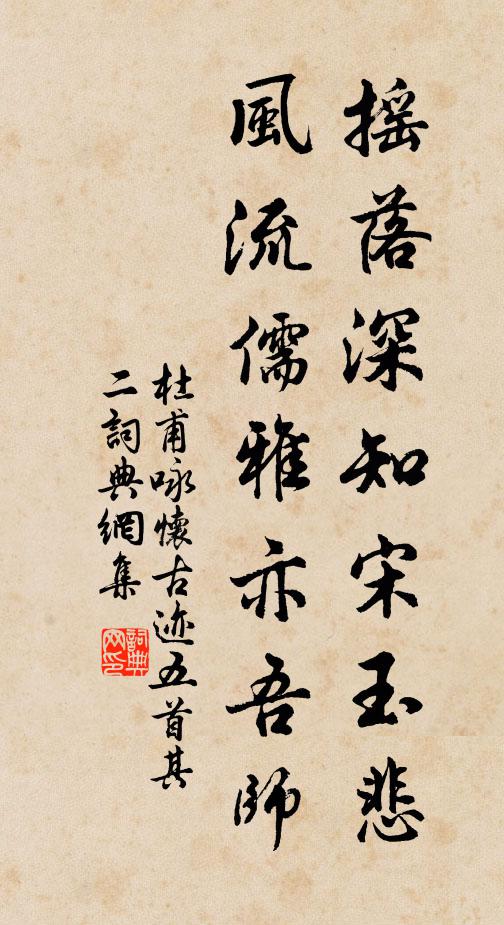 摇落深知宋玉悲
風流儒雅亦吾師
杜甫咏懷古迹五首其
二詞典網集
詞典網印